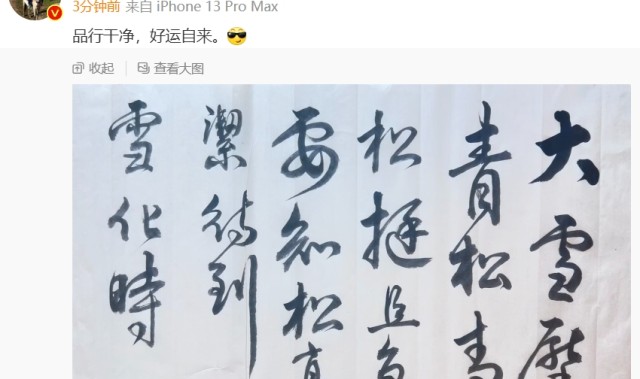 3分钟前 来自 iPhone 13 Pro Max
品行干净，好运自来。
收起 查看大图
大雪壓
青松青
松挺且
要知松高
潔待到
雪化時